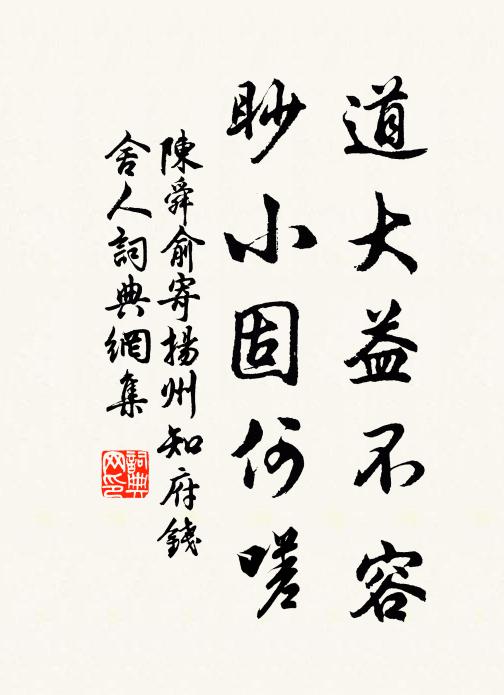 道大益不容
眇小固何嗟
陳舜俞寄揚州知府錢
舍人詞典網集
詞典网印